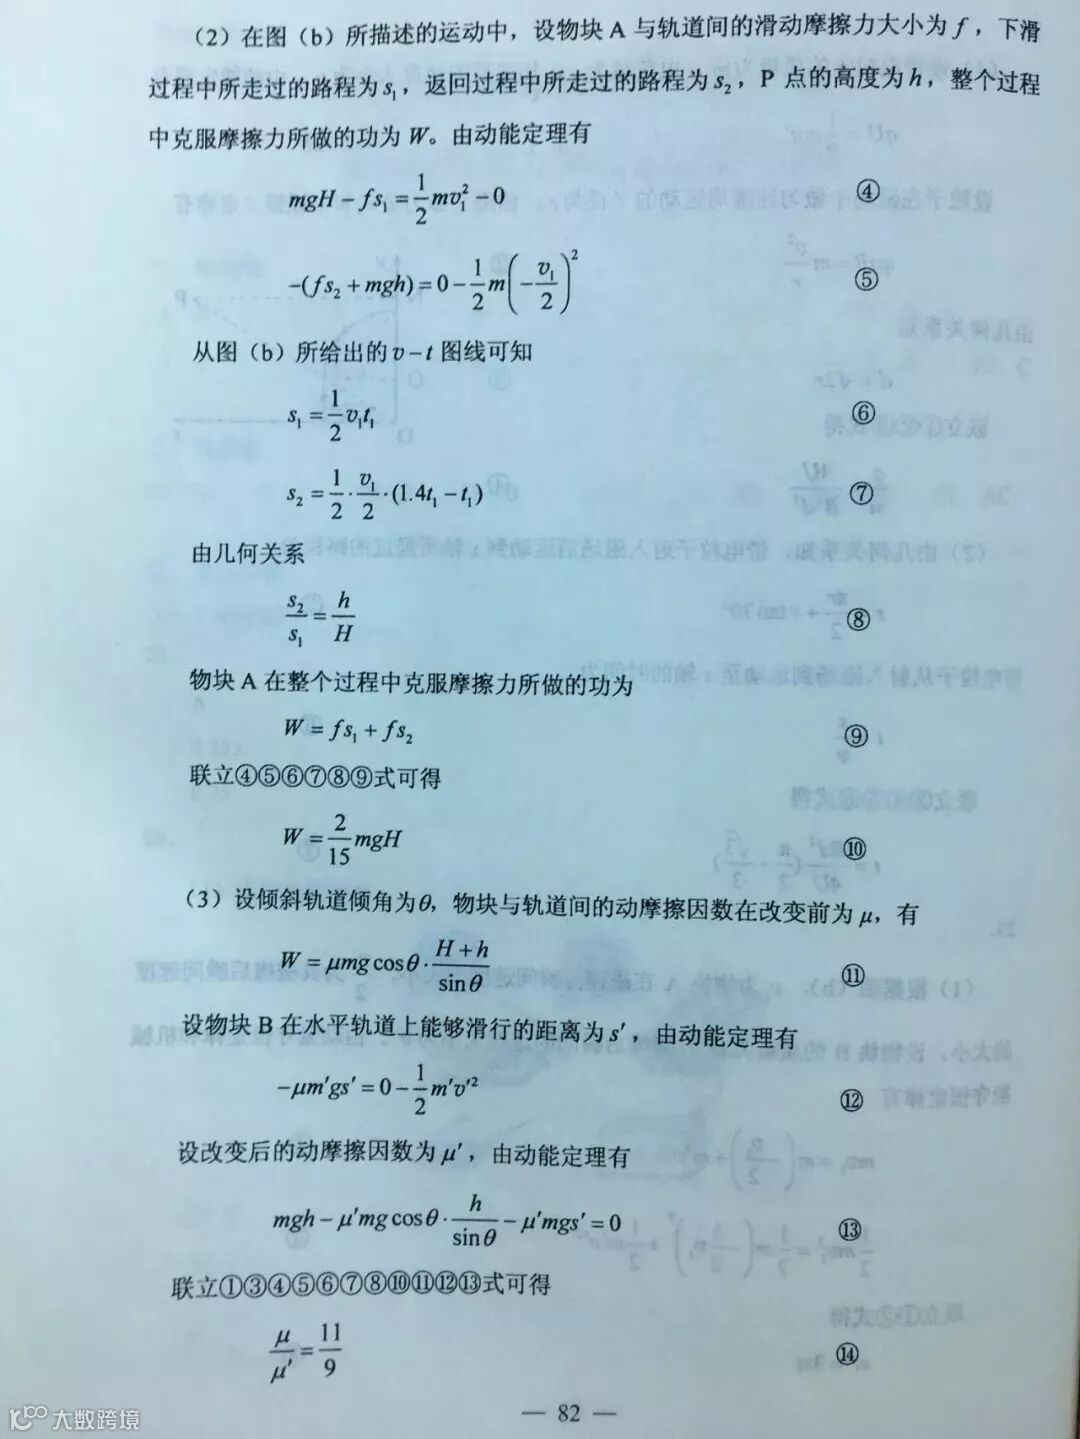 （2）在图（b）所描述的运动中，设物块 A 与轨道间的滑动摩擦力大小为 f，下滑
过程中所走过的路程为 s₁，返回过程中所走过的路程为 s₂，P 点的高度为 h，整个过程
中克服摩擦力所做的功为 W。由动能定理有
mgH − fs₁ = 1/2 mv₁² − 0 ④
−(fs₂ + mgh) = 0 − 1/2 m(−v₁/2)² ⑤
从图（b）所给出的 v − t 图线可知
s₁ = 1/2 v₁t₁ ⑥
s₂ = 1/2 · v₁/2 · (1.4t₁ − t₁) ⑦
由几何关系
s₂/s₁ = h/H ⑧
物块 A 在整个过程中克服摩擦力所做的功为
W = fs₁ + fs₂ ⑨
联立④⑤⑥⑦⑧⑨式可得
W = 2/15 mgH ⑩
（3）设倾斜轨道倾角为θ，物块与轨道间的动摩擦因数在改变前为 μ，有
W = μmg cosθ · (H + h)/sinθ ⑪
设物块 B 在水平轨道上能够滑行的距离为 s′，由动能定理有
−μm′gs′ = 0 − 1/2 m′v′² ⑫
设改变后的动摩擦因数为 μ′，由动能定理有
mgh − μ′mg cosθ · h/sinθ − μ′mgs′ = 0 ⑬
联立①③④⑤⑥⑦⑧⑩⑪⑫⑬式可得
μ/μ′ = 11/9 ⑭
— 82 —
大数跨境